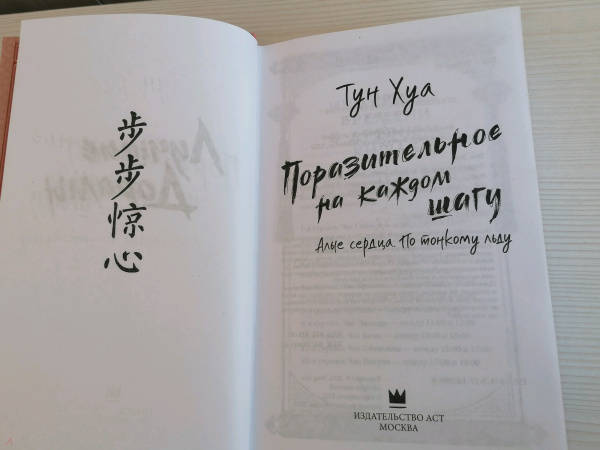 步步惊心
Тун Хуа
Поразительное
на каждом
шагу
Алые сердца. По тонкому льду
ИЗДАТЕЛЬСТВО АСТ
МОСКВА